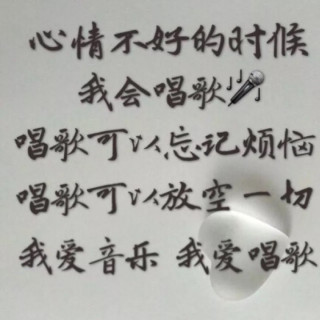 心情不好的时候
我会唱歌🎤
唱歌可以忘记烦恼
唱歌可以放空一切
我爱音乐 我爱唱歌